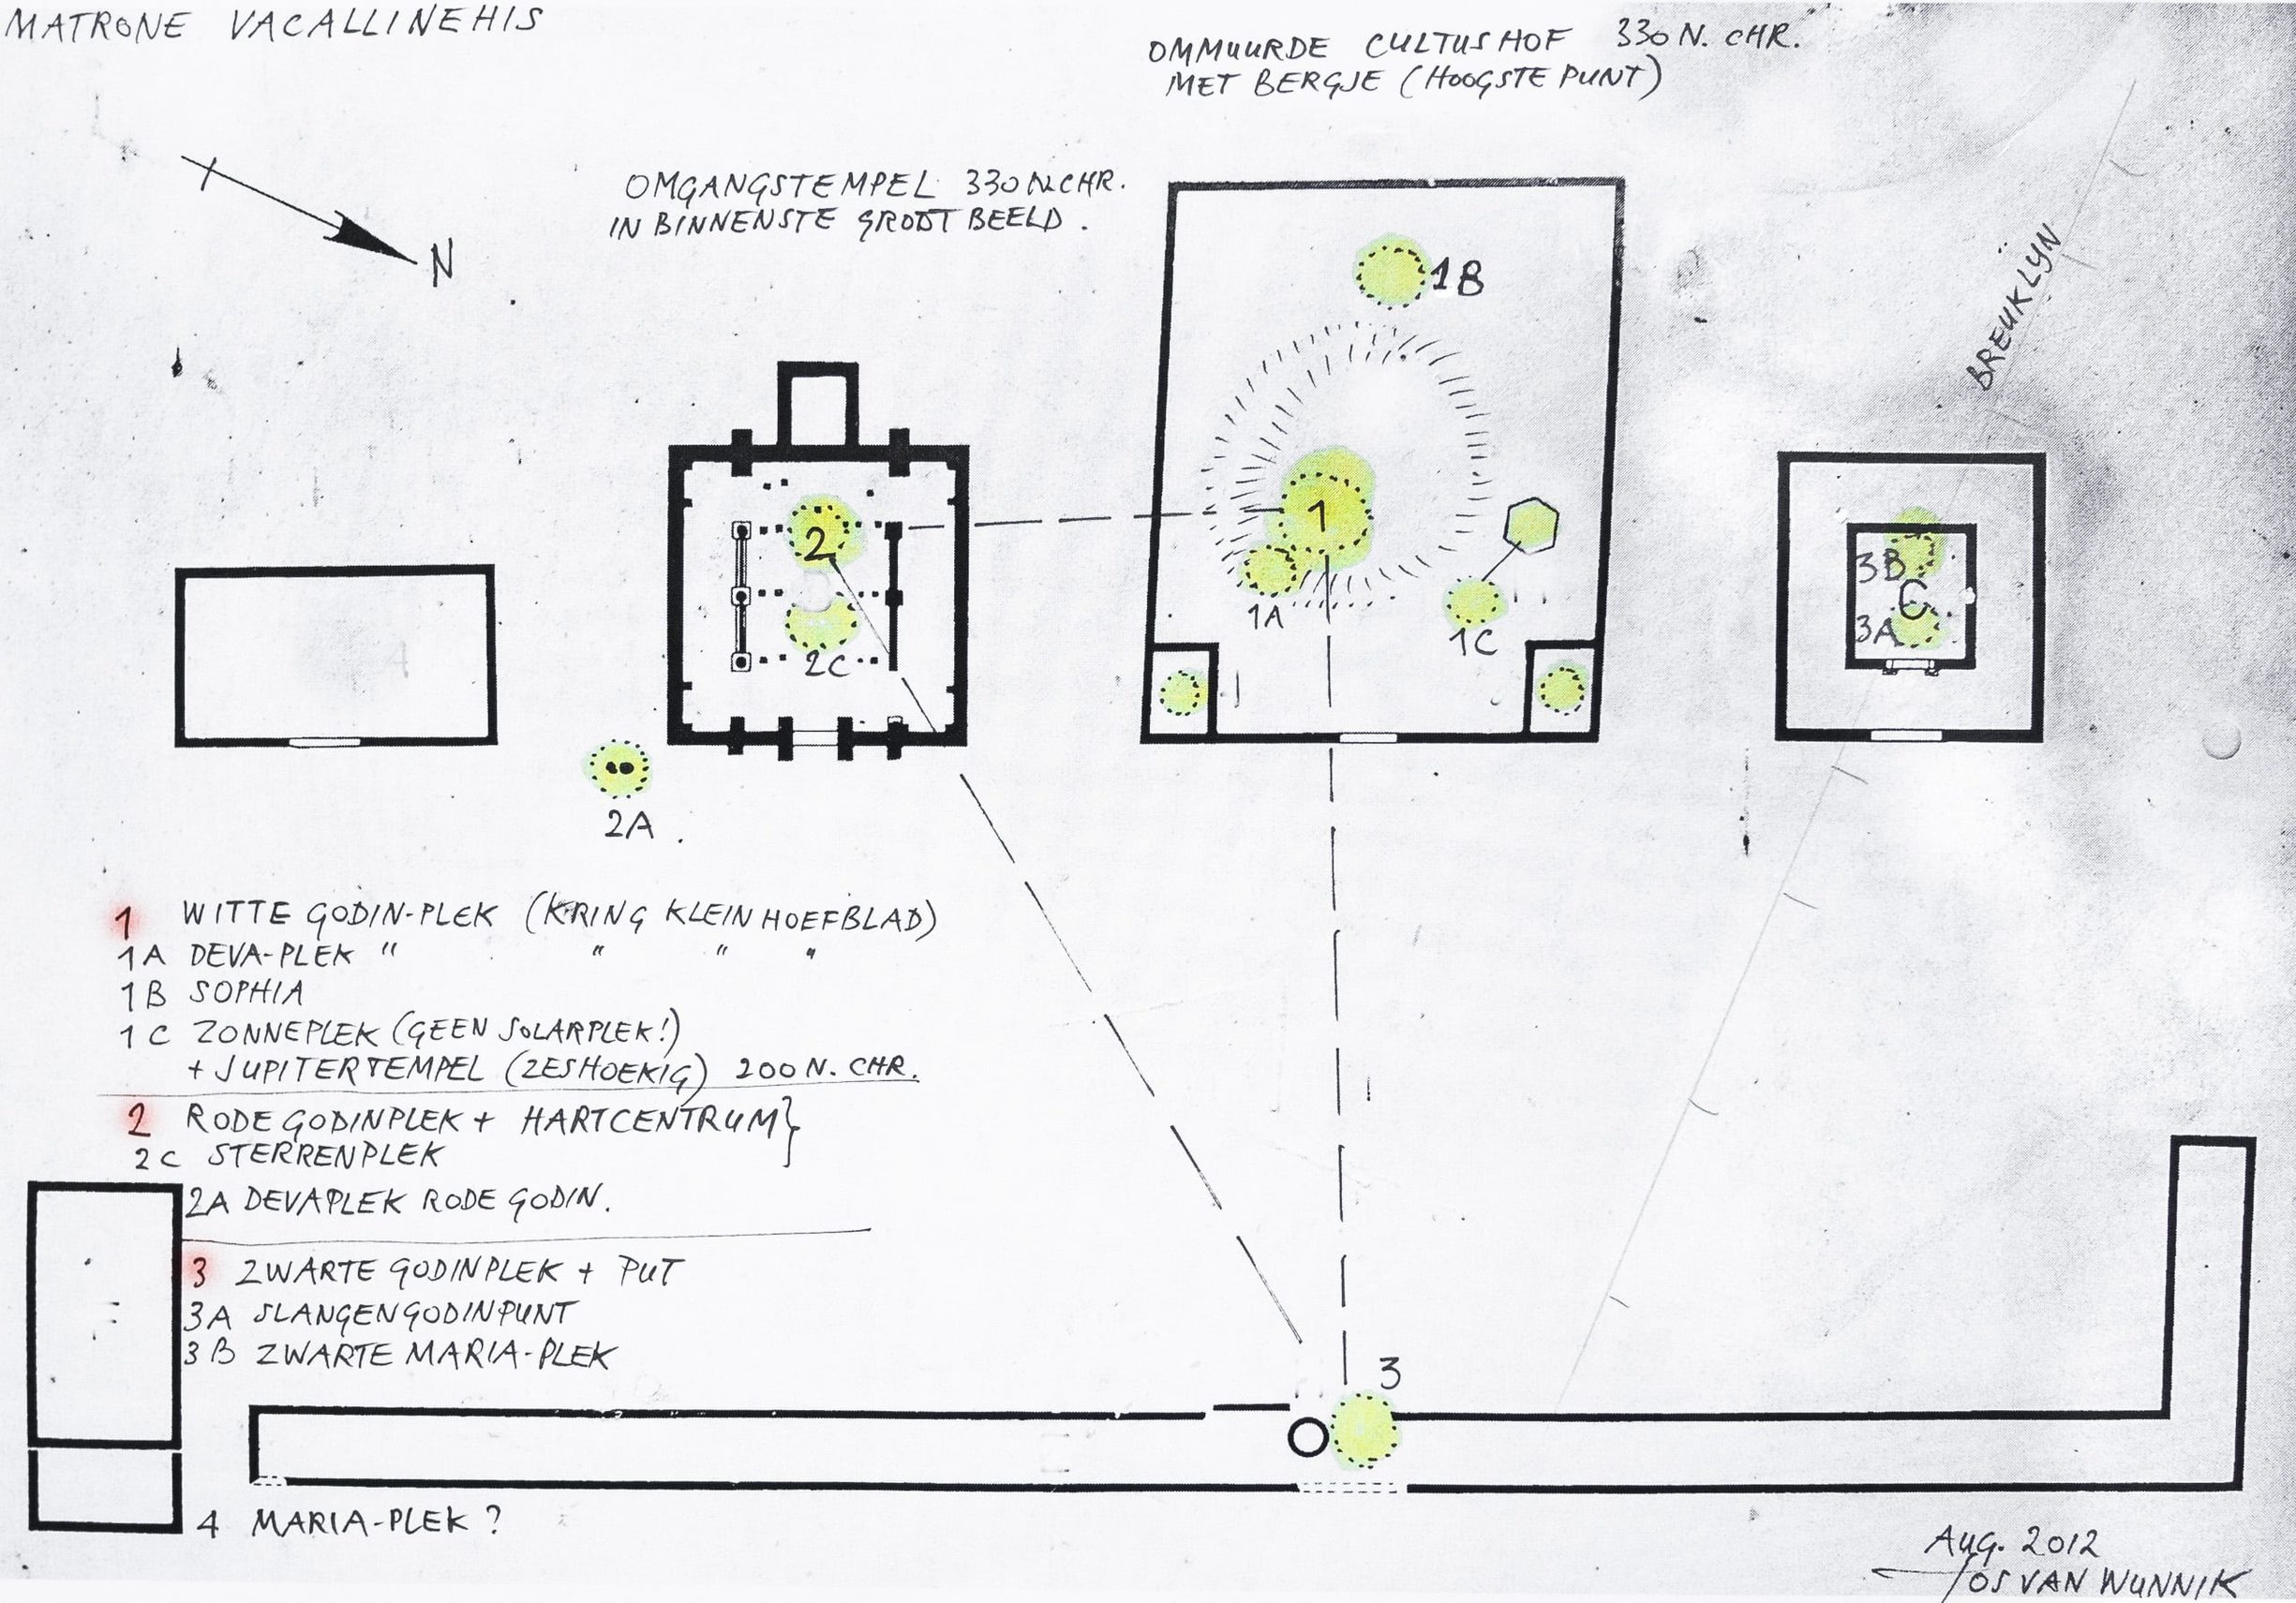 MATRONE VACALLINEHIS
OMMUURDE CULTUSHOF 330 N. CHR.
MET BERGJE (HOOGSTE PUNT)
OMGANGSTEMPEL 330 N. CHR.
IN BINNENSTE GROOT BEELD.
N
BREUKLIJN
1B
1
1A
1C
2
2C
2A
3B
C
3A
1 WITTE GODIN-PLEK (KRING KLEIN HOEFBLAD)
1A DEVA-PLEK " " " "
1B SOPHIA
1C ZONNEPLEK (GEEN SOLARPLEK!)
+ JUPITERTEMPEL (ZESHOEKIG) 200 N. CHR.
2 RODE GODINPLEK + HARTCENTRUM}
2C STERRENPLEK
2A DEVAPLEK RODE GODIN.
3 ZWARTE GODINPLEK + PUT
3A SLANGENGODINPUNT
3B ZWARTE MARIA-PLEK
3
4 MARIA-PLEK?
AUG. 2012
JOS VAN WUNNIK